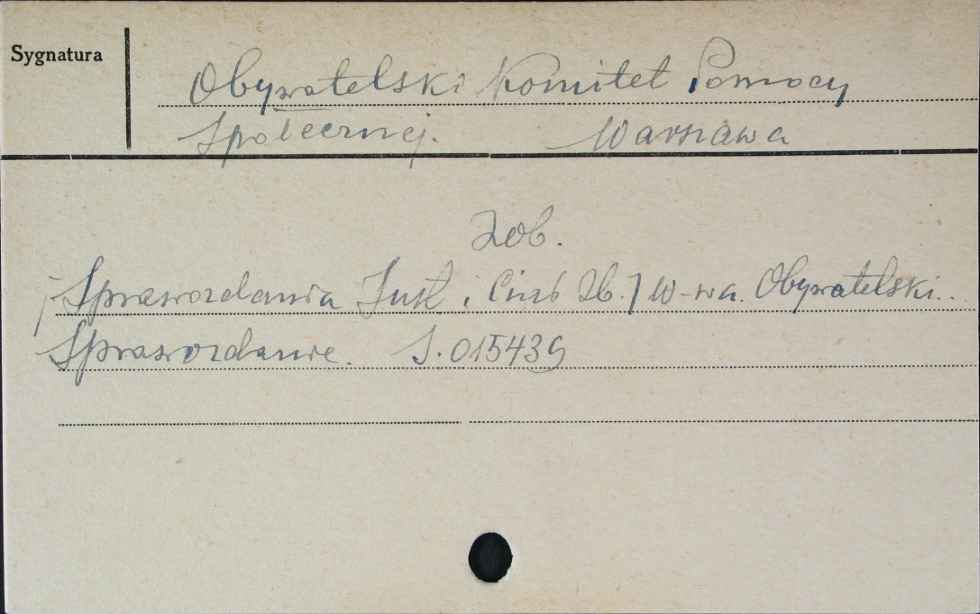 Sygnatura
Obywatelski Komitet Pomocy
Społecznej. Warszawa
Zob.
Sprawozdania Inst. i Zb.] W-wa. Obywatelski..
Sprawozdanie. S.015439